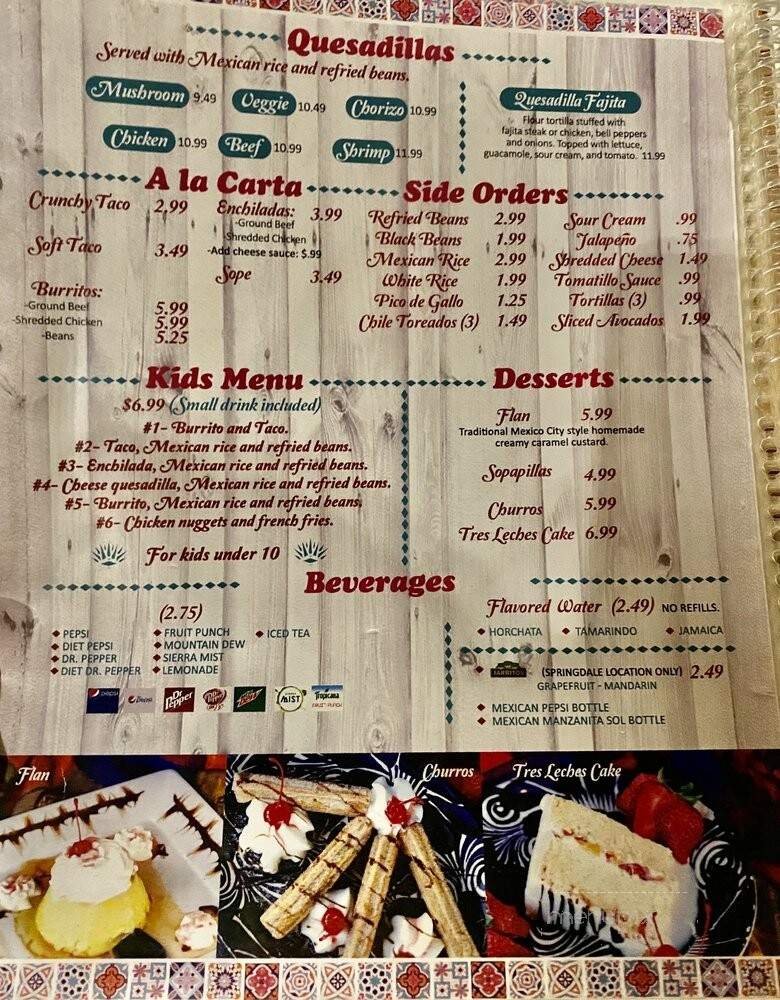 Quesadillas
Served with Mexican rice and refried beans.
Mushroom 9.49
Veggie 10.49
Chorizo 10.99
Chicken 10.99
Beef 10.99
Shrimp 11.99
Quesadilla Fajita
Flour tortilla stuffed with
fajita steak or chicken, bell peppers
and onions. Topped with lettuce,
guacamole, sour cream, and tomato. 11.99
A la Carta
Crunchy Taco 2,99
Soft Taco 3.49
Burritos:
-Ground Beef 5.99
-Shredded Chicken 5.99
-Beans 5.25
Enchiladas: 3.99
-Ground Beef
-Shredded Chicken
-Add cheese sauce: $.99
Sope 3.49
Side Orders
Refried Beans 2.99
Black Beans 1.99
Mexican Rice 2.99
White Rice 1.99
Pico de Gallo 1.25
Chile Toreados (3) 1.49
Sour Cream .99
Jalapeño .75
Shredded Cheese 1.49
Tomatillo Sauce .99
Tortillas (3) .99
Sliced Avocados 1.99
Kids Menu
$6.99 (Small drink included)
#1- Burrito and Taco.
#2- Taco, Mexican rice and refried beans.
#3- Enchilada, Mexican rice and refried beans.
#4- Cheese quesadilla, Mexican rice and refried beans.
#5- Burrito, Mexican rice and refried beans.
#6- Chicken nuggets and french fries.
For kids under 10
Desserts
Flan 5.99
Traditional Mexico City style homemade
creamy caramel custard.
Sopapillas 4.99
Churros 5.99
Tres Leches Cake 6.99
Beverages
(2.75)
PEPSI
DIET PEPSI
DR. PEPPER
DIET DR. PEPPER
FRUIT PUNCH
MOUNTAIN DEW
SIERRA MIST
LEMONADE
ICED TEA
Dr Pepper
MIST
Tropicana
FRUIT PUNCH
Flavored Water (2.49) NO REFILLS.
HORCHATA
TAMARINDO
JAMAICA
JARRITOS (SPRINGDALE LOCATION ONLY) 2.49
GRAPEFRUIT - MANDARIN
MEXICAN PEPSI BOTTLE
MEXICAN MANZANITA SOL BOTTLE
Flan
Churros
Tres Leches Cake